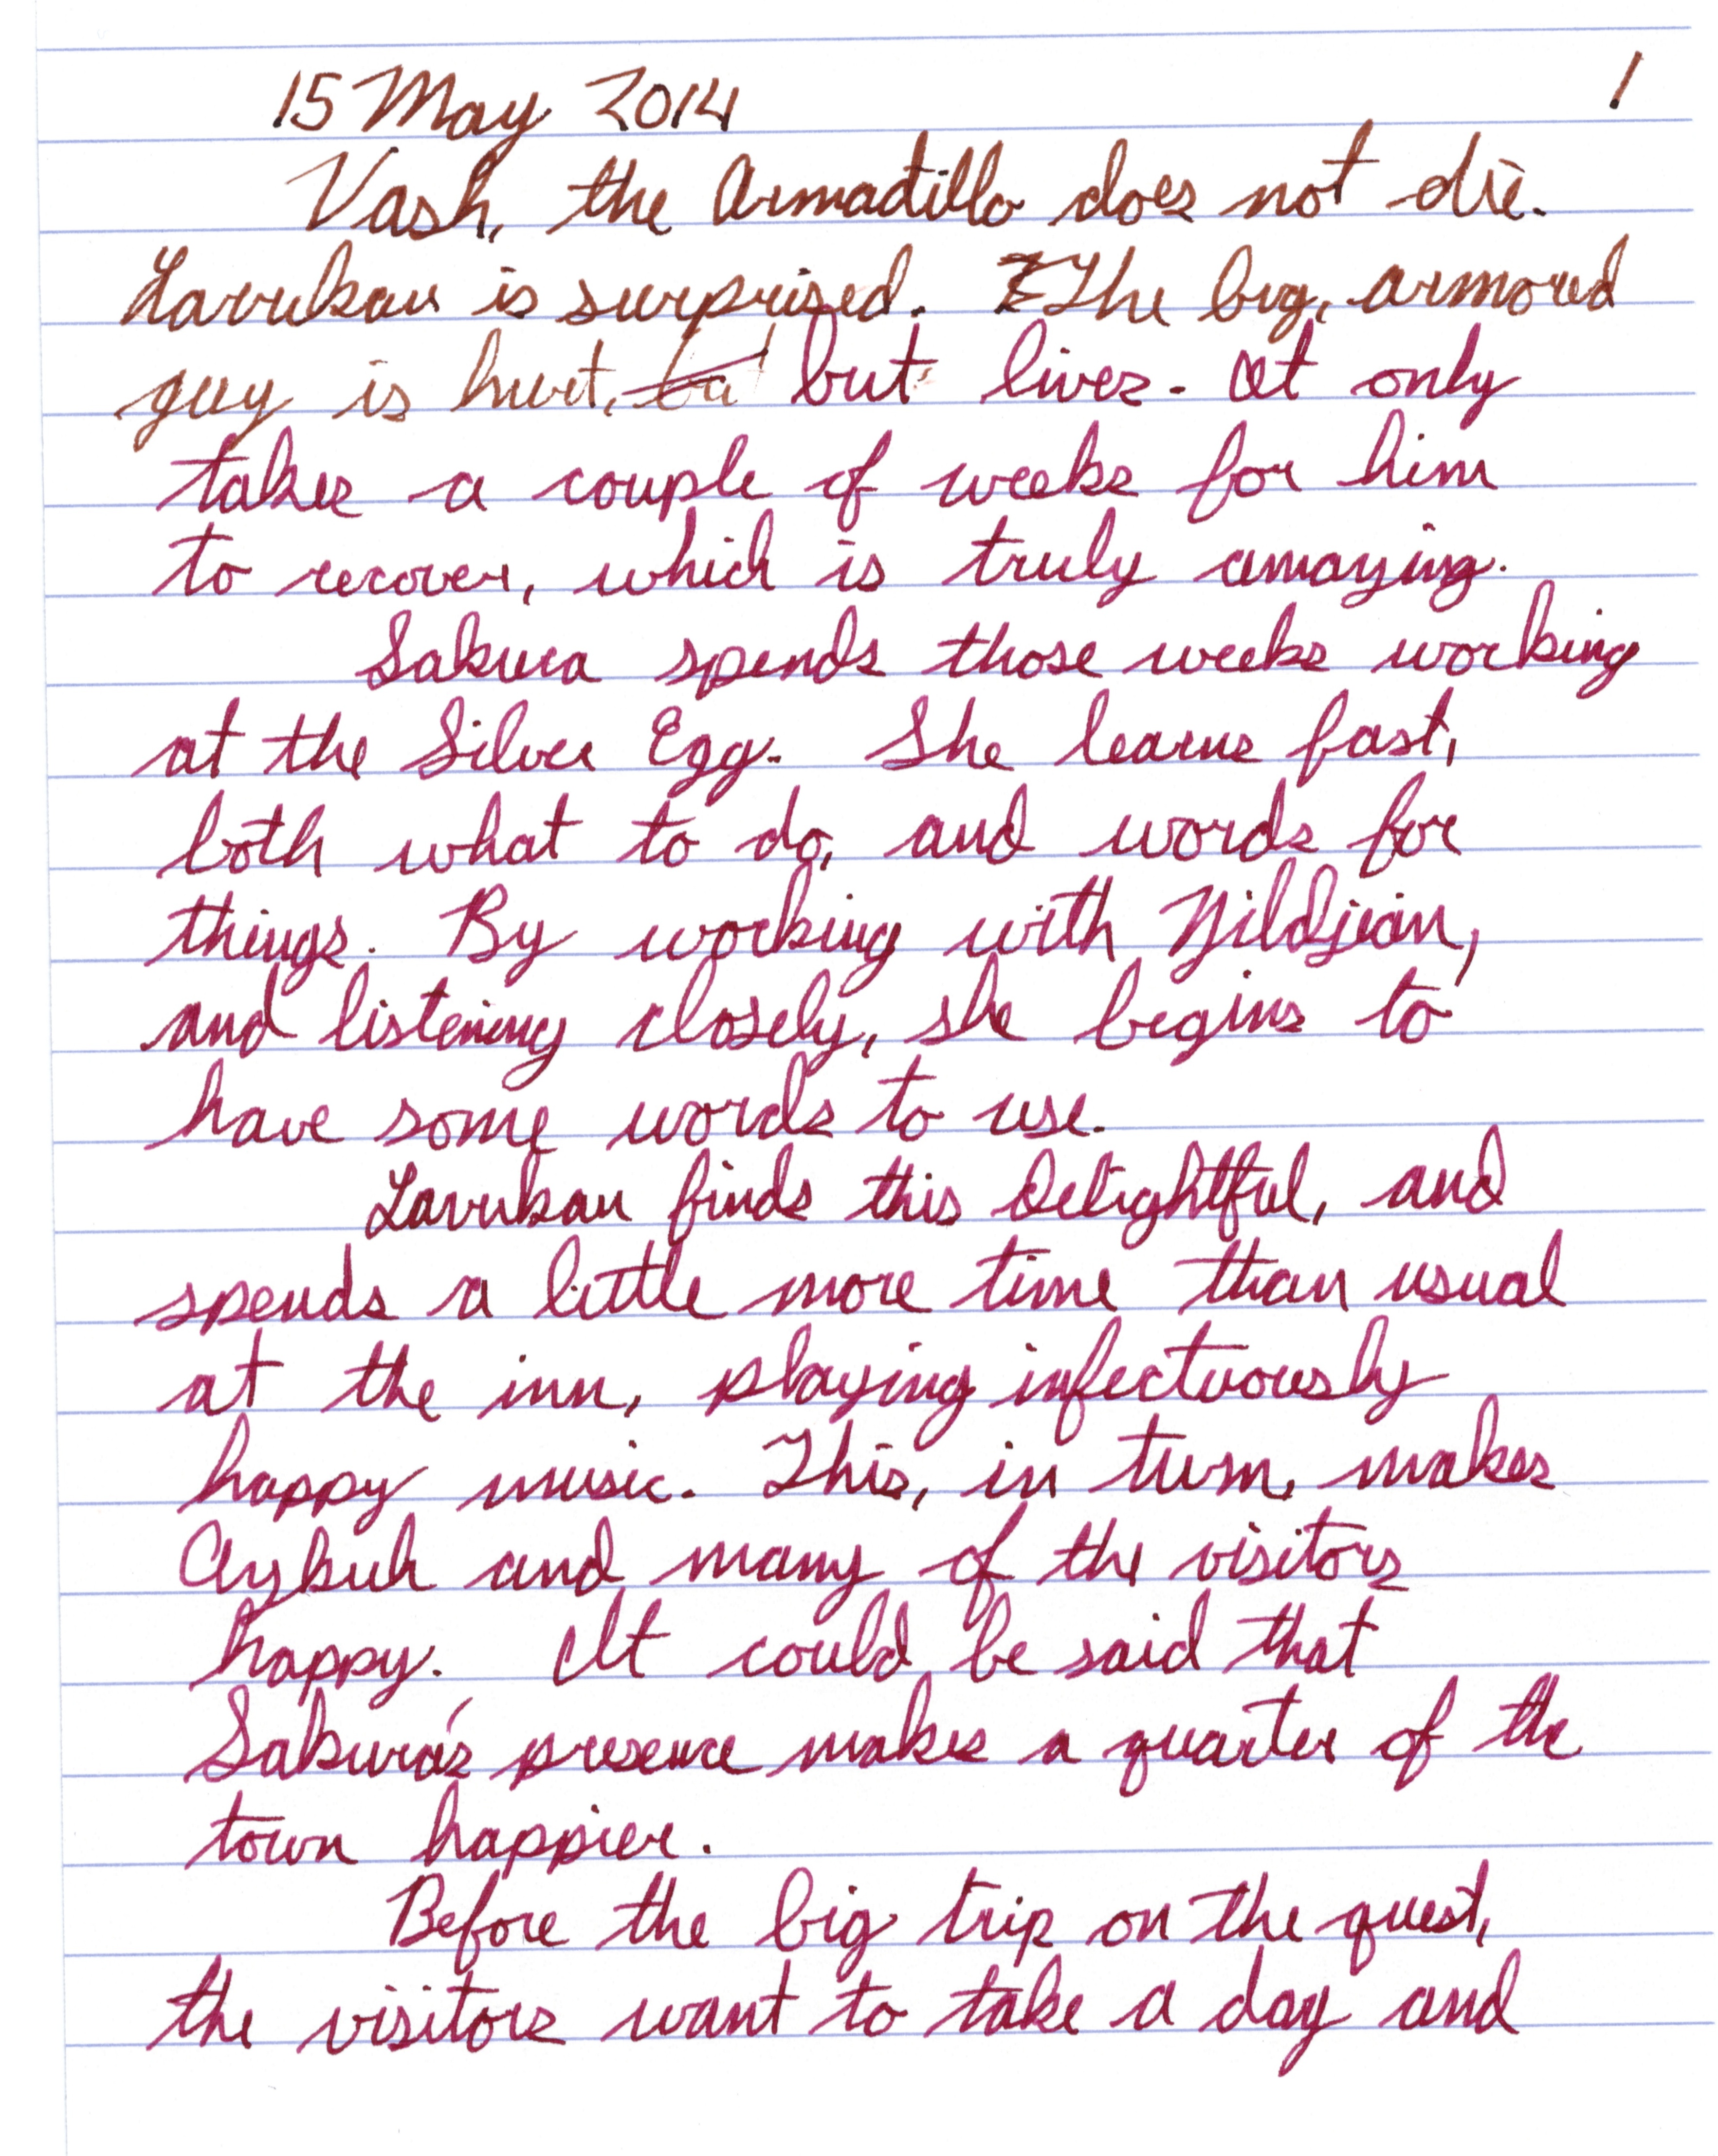 15 May 2014 1
Vash, the Armadillo does not die.
Lavukan is surprised. The big, armored
guy is hurt, but lives. It only
takes a couple of weeks for him
to recover, which is truly amazing.
Sakura spends those weeks working
at the Silver Egg. She learns fast,
both what to do, and words for
things. By working with Yildjian,
and listening closely, she begins to
have some words to use.
Lavukan finds this delightful, and
spends a little more time than usual
at the inn, playing infectuously
happy music. This, in turn, makes
Aybuh and many of the visitors
happy. It could be said that
Sakura's presence makes a quarter of the
town happier.
Before the big trip on the quest,
the visitors want to take a day and